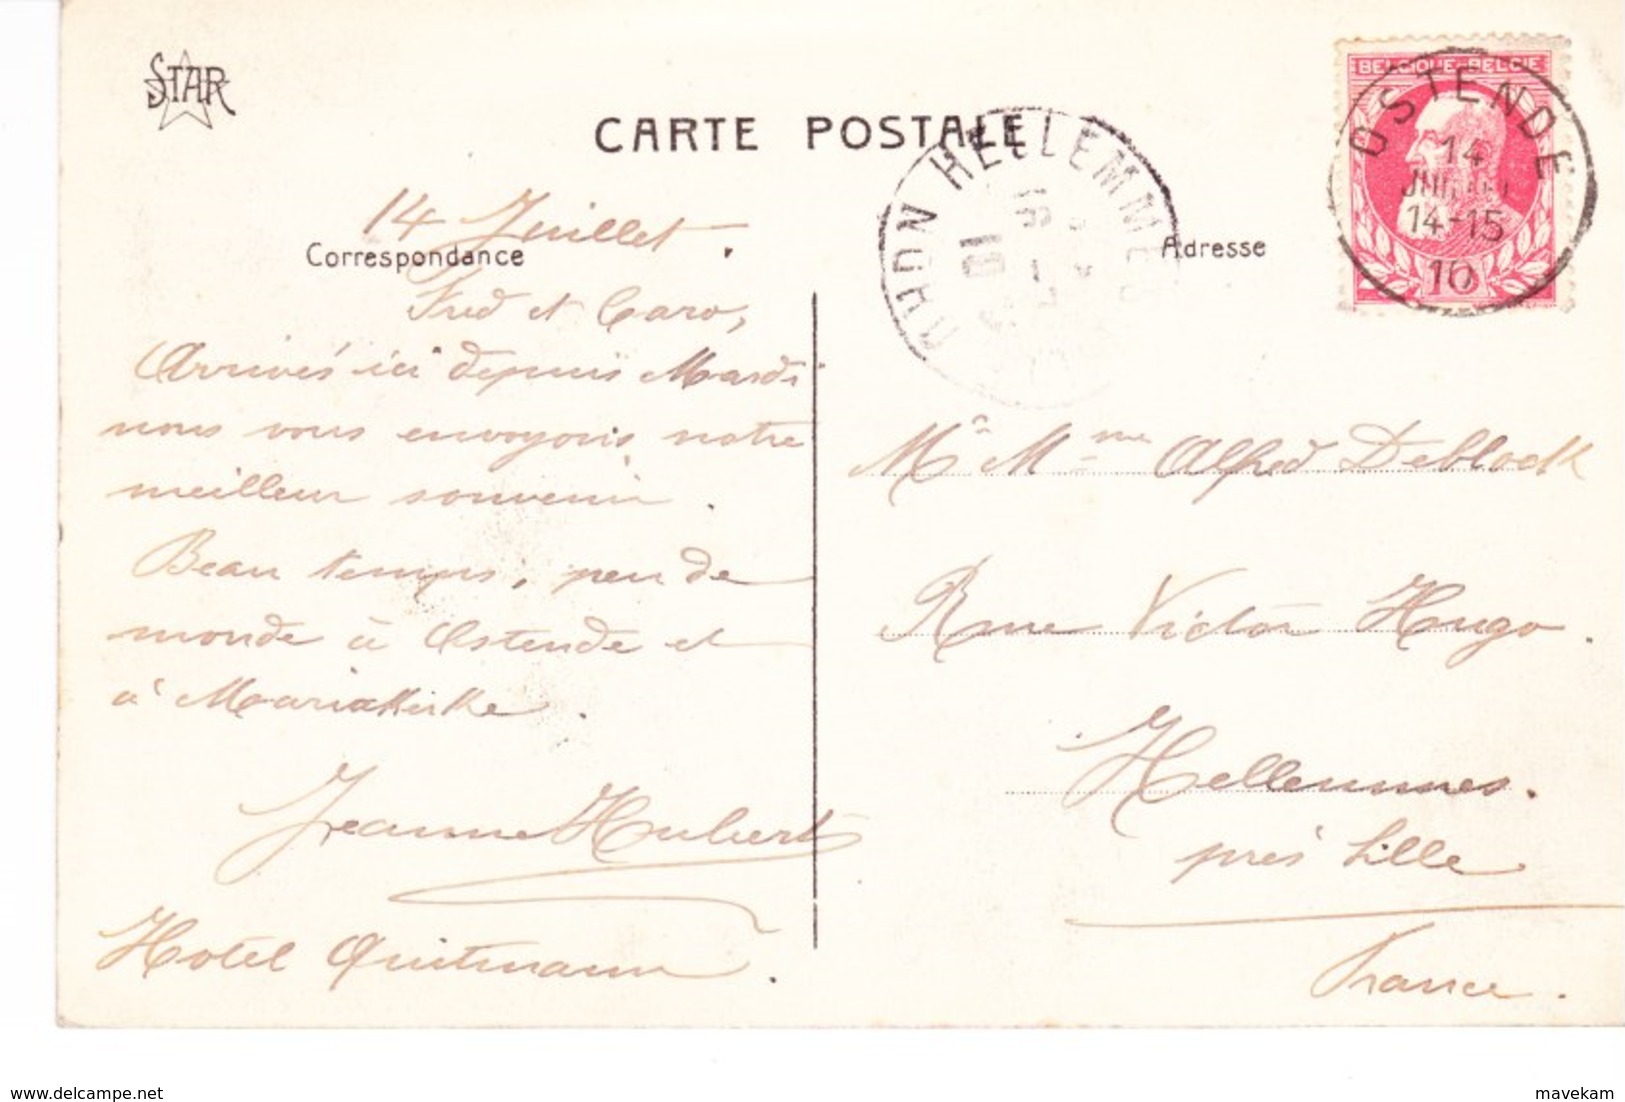 STAR
CARTE POSTALE
BELGIQUE-BELGIE
OSTENDE
14
14-15
10
HELLEMMES
16
10
Correspondance
Adresse
14 Juillet.
Fred et Caro,
Arrivés ici depuis Mardi
nous vous envoyons notre
meilleur souvenir.
Beau temps, peu de
monde à Ostende et
à Mariakerke.
Jeanne Hubert
Hotel Quitmann.
Mr Mme Alfred Deblock
Rue Victor Hugo.
Hellemmes.
près Lille
France.
www.delcampe.net
mavekam